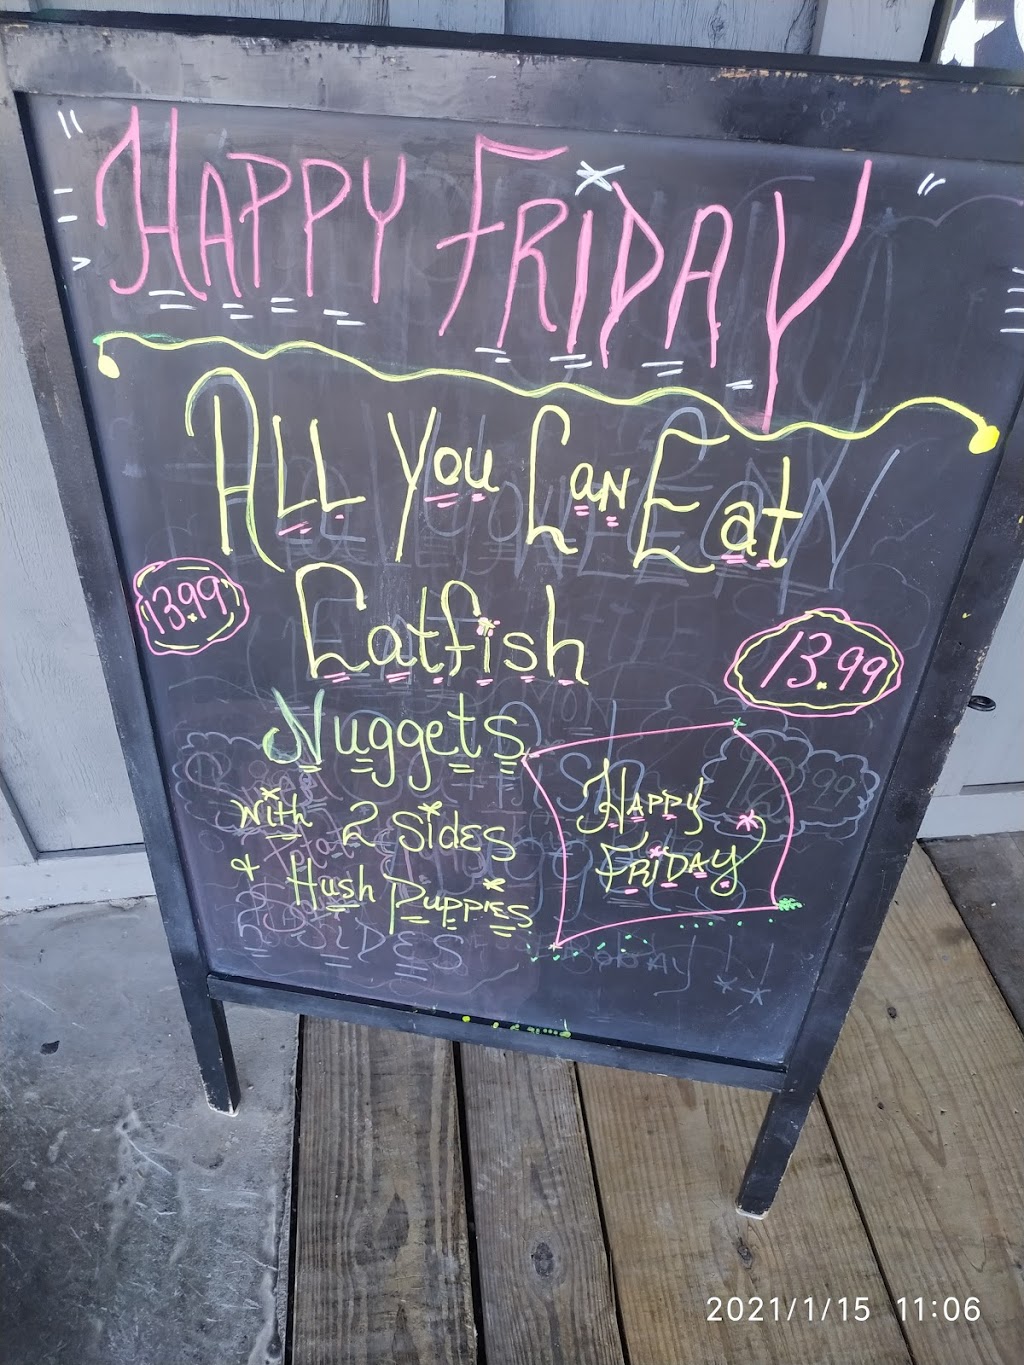 " HAPPY FRIDAY "
ALL YOU CAN EAT
13.99
Catfish
13.99
Nuggets
With 2 SIDES
+ Hush PUPPIES
HAPPY
FRIDAY
2021/1/15 11:06